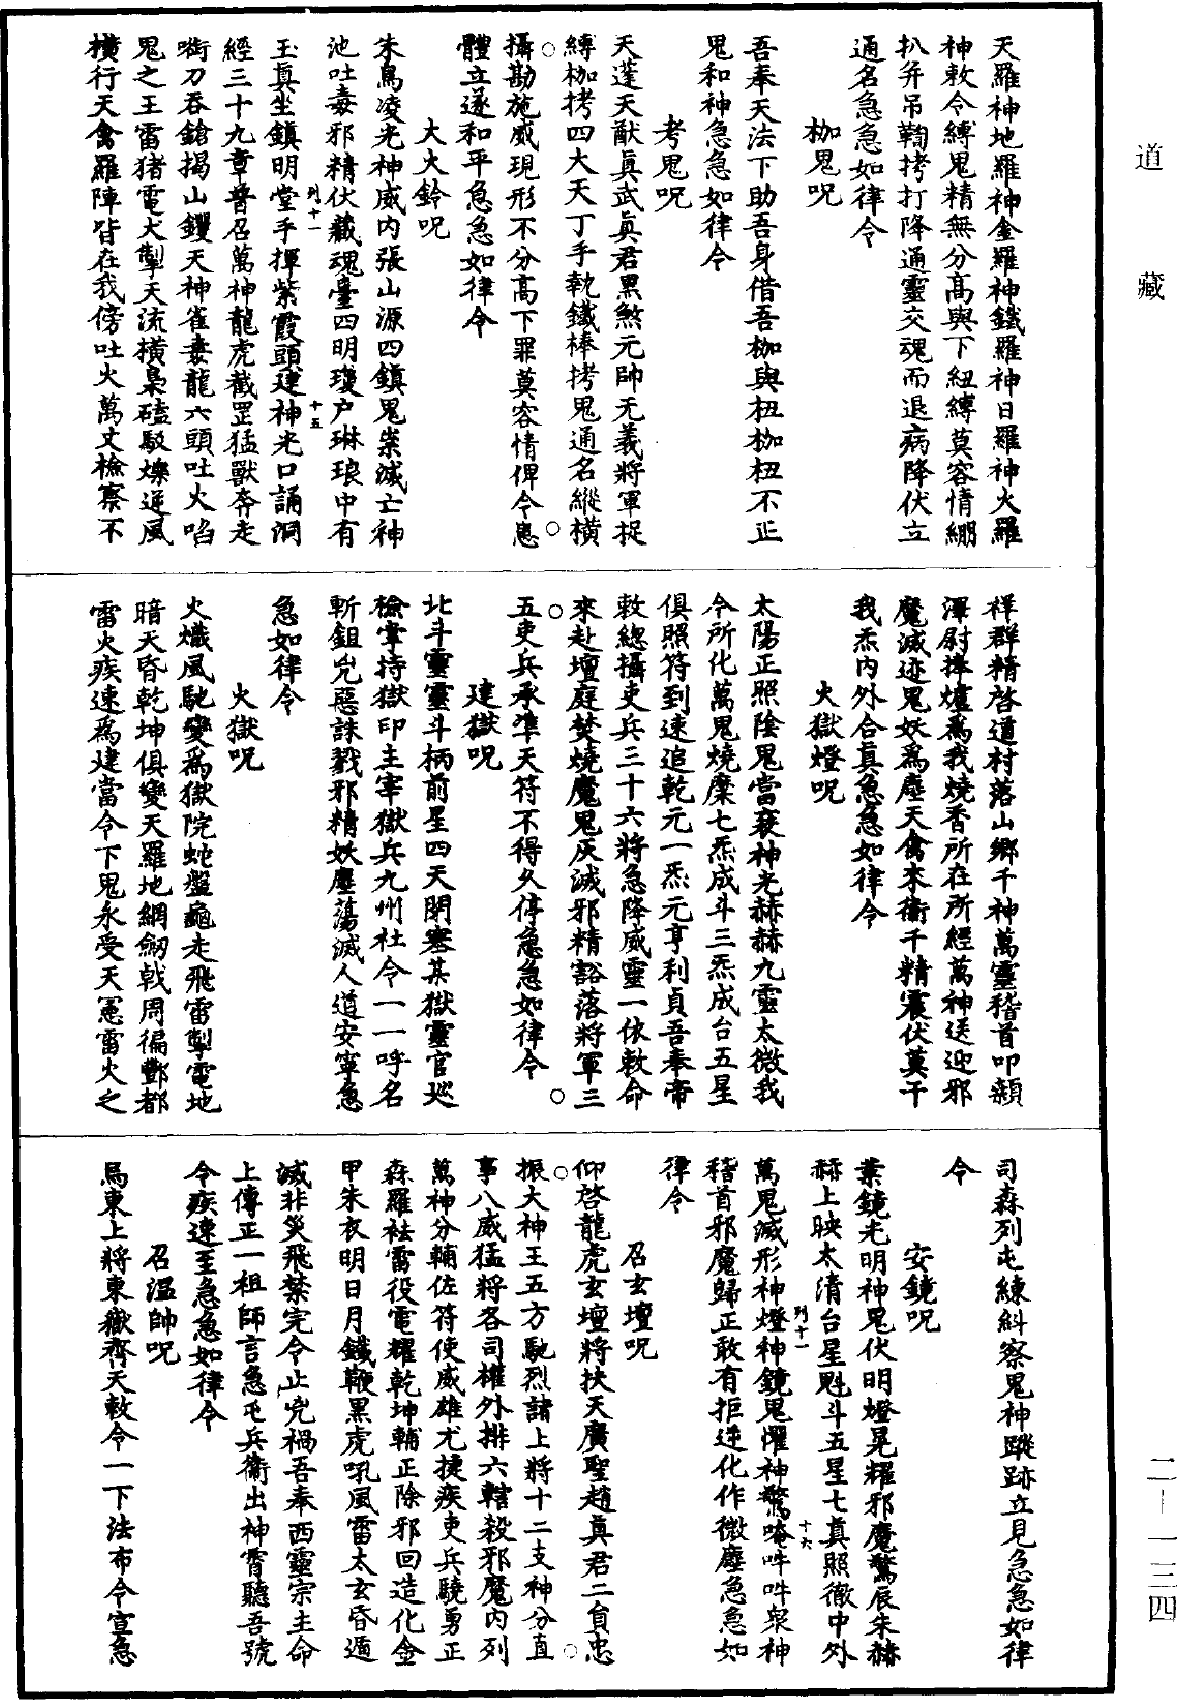 道藏
天羅神地羅神金羅神鐵羅神日羅神火羅
神敕令縛鬼精無分高與下紐縛莫容情繃
扒弁吊鞫拷打降通靈交魂而退病降伏立
通名急急如律令
枷鬼呪
吾奉天法下助吾身借吾枷與杻枷杻不正
鬼和神急急如律令
考鬼呪
天蓬天猷眞武眞君黑煞元帥无義將軍捉
縛枷拷四大天丁手執鐵棒拷鬼通名縱橫
攝勘施威現形不分高下罪莫容情俾令患
體立遂和平急急如律令
大火鈴呪
朱鳥凌光神威內張山源四鎮鬼祟滅亡神
池吐毒邪精伏藏魂臺四明瓊户琳琅中有
列十一
十五
玉眞坐鎮明堂手揮紫霞頭建神光口誦洞
經三十九章普召萬神龍虎截罡猛獸奔走
啣刀吞鎗揭山钁天神雀毒龍六頭吐火啗
鬼之王雷猪電犬掣天流橫梟磕駁爍逆風
橫行天禽羅陣皆在我傍吐火萬丈檢察不
祥群精啓道村落山鄉千神萬靈稽首叩顙
澤尉捧爐爲我燒香所在所經萬神送迎邪
魔滅迹鬼妖爲塵天禽來衛千精震伏莫干
我炁內外合真急急如律令
火獄燈呪
太陽正照陰鬼當衰神光赫赫九靈太微我
今所化萬鬼燒糜七炁成斗三炁成台五星
俱照符到速追乾元一炁元亨利貞吾奉帝
敕總攝吏兵三十六將急降威靈一依敕命
來赴壇庭焚燒魔鬼灰滅邪精豁落將軍三
五吏兵承準天符不得久停急急如律令
建獄呪
北斗靈靈斗柄前星四天閉塞某獄靈官巡
檢掌持獄印主宰獄兵九州社令一一呼名
斬鉏兇惡誅戮邪精妖塵蕩滅人道安寧急
急如律令
火獄呪
火熾風馳變爲獄院蛇盤龜走飛雷掣電地
暗天昏乾坤俱變天羅地網劒戟周徧酆都
雷火疾速爲建當令下鬼永受天憲雷火之
司森列屯練糾察鬼神蹤跡立見急急如律
令
安鏡呪
業鏡光明神鬼伏明燈晃耀邪魔驚辰朱赫
赫上映太清台星魁斗五星七真照徹中外
列十一
十六
萬鬼滅形神燈神鏡鬼懼神驚唵吽吽衆神
稽首邪魔歸正敢有拒逆化作微塵急急如
律令
召玄壇呪
仰啓龍虎玄壇將扶天廣聖趙真君二負忠
振大神王五方馳烈諸上將十二支神分直
事八威猛將各司權外排六轄殺邪魔內列
萬神分輔佐符使威雄尤捷疾吏兵驍勇正
森羅袪雷役電耀乾坤輔正除邪回造化金
甲朱衣明日月鐵鞭黑虎吼風雷太玄昏遁
滅非災飛禁完令止兇禍吾奉西靈宗主命
上傳正一祖師言急屯兵衛出神霄聽吾號
令疾速至急急如律令
召溫帥呪
烏東上將東嶽齊天敕令一下法布令宣急
二一一三四